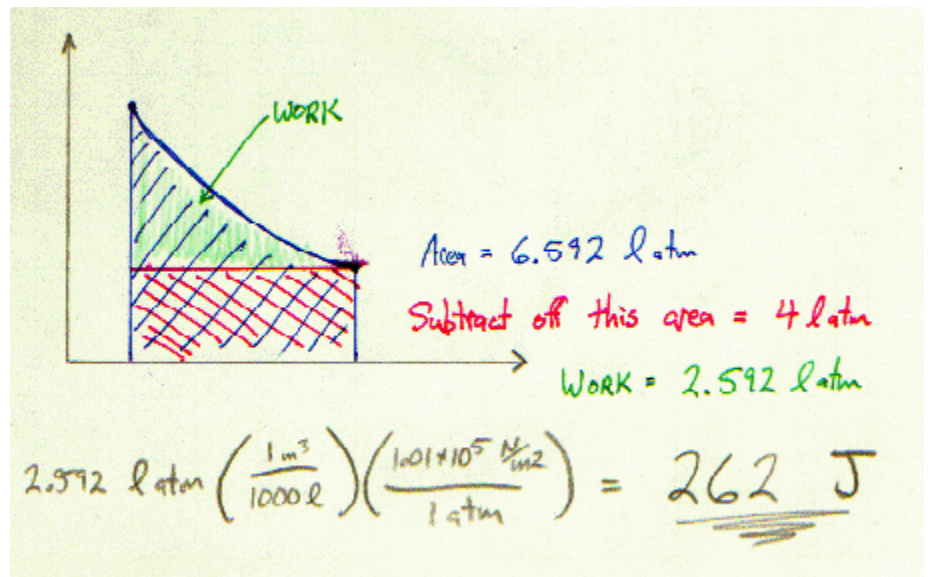 WORK
Area = 6.592 l atm
Subtract off this area = 4 l atm
WORK = 2.592 l atm
2.592 l atm (1 m³ / 1000 l) (1.01×10⁵ N/m2 / 1 atm) = 262 J